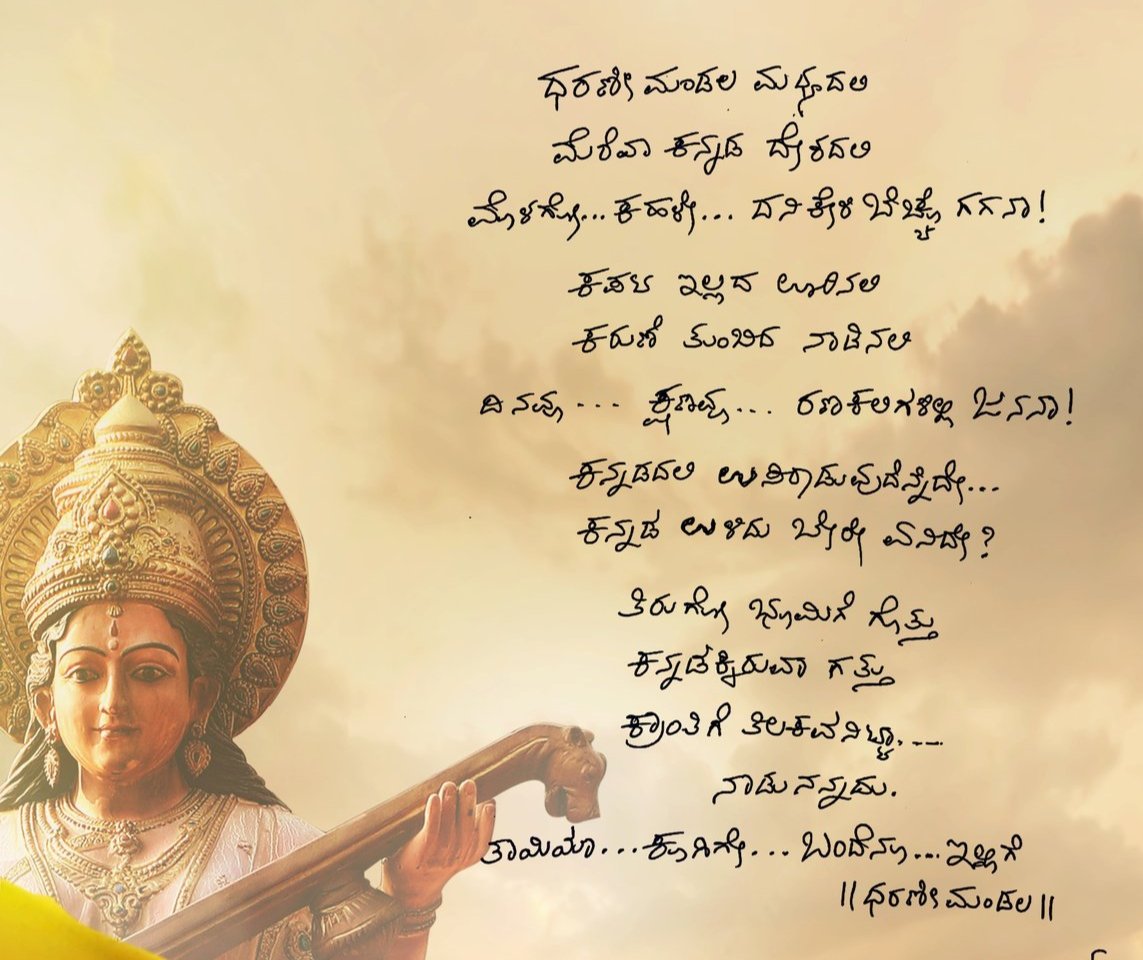 ಧರಣೀ ಮಂಡಲ ಮಧ್ಯದಲಿ
ಮೆರೆವಾ ಕನ್ನಡ ದೇಶದಲಿ
ಮೊಳಗೋ... ಕಹಳೇ... ದನಿಕೇಳಿ ಬೆಚ್ಚೋ ಗಗನಾ!
ಕಪಟ ಇಲ್ಲದ ಊರಿನಲಿ
ಕರುಣೆ ತುಂಬಿದ ನಾಡಿನಲಿ
ದಿನವೂ... ಕ್ಷಣವೂ... ರಣಕಲಿಗಳಿಲ್ಲಿ ಜನನಾ!
ಕನ್ನಡದಲಿ ಉಸಿರಾಡುವುದೆನ್ನೆದೇ...
ಕನ್ನಡ ಉಳಿದು ಬೇರೇ ಏನಿದೇ?
ತಿರುಗೋ ಭೂಮಿಗೆ ಗೊತ್ತು
ಕನ್ನಡಕ್ಕಿರುವಾ ಗತ್ತು
ಕ್ರಾಂತಿಗೆ ತಿಲಕವನಿಟ್ಟಾ....
ನಾಡು ನನ್ನದು.
ತಾಯಿಯಾ... ಕೂಗಿಗೇ... ಬಂದೆನೂ... ಇಲ್ಲಿಗೆ
|| ಧರಣೀ ಮಂಡಲ ||